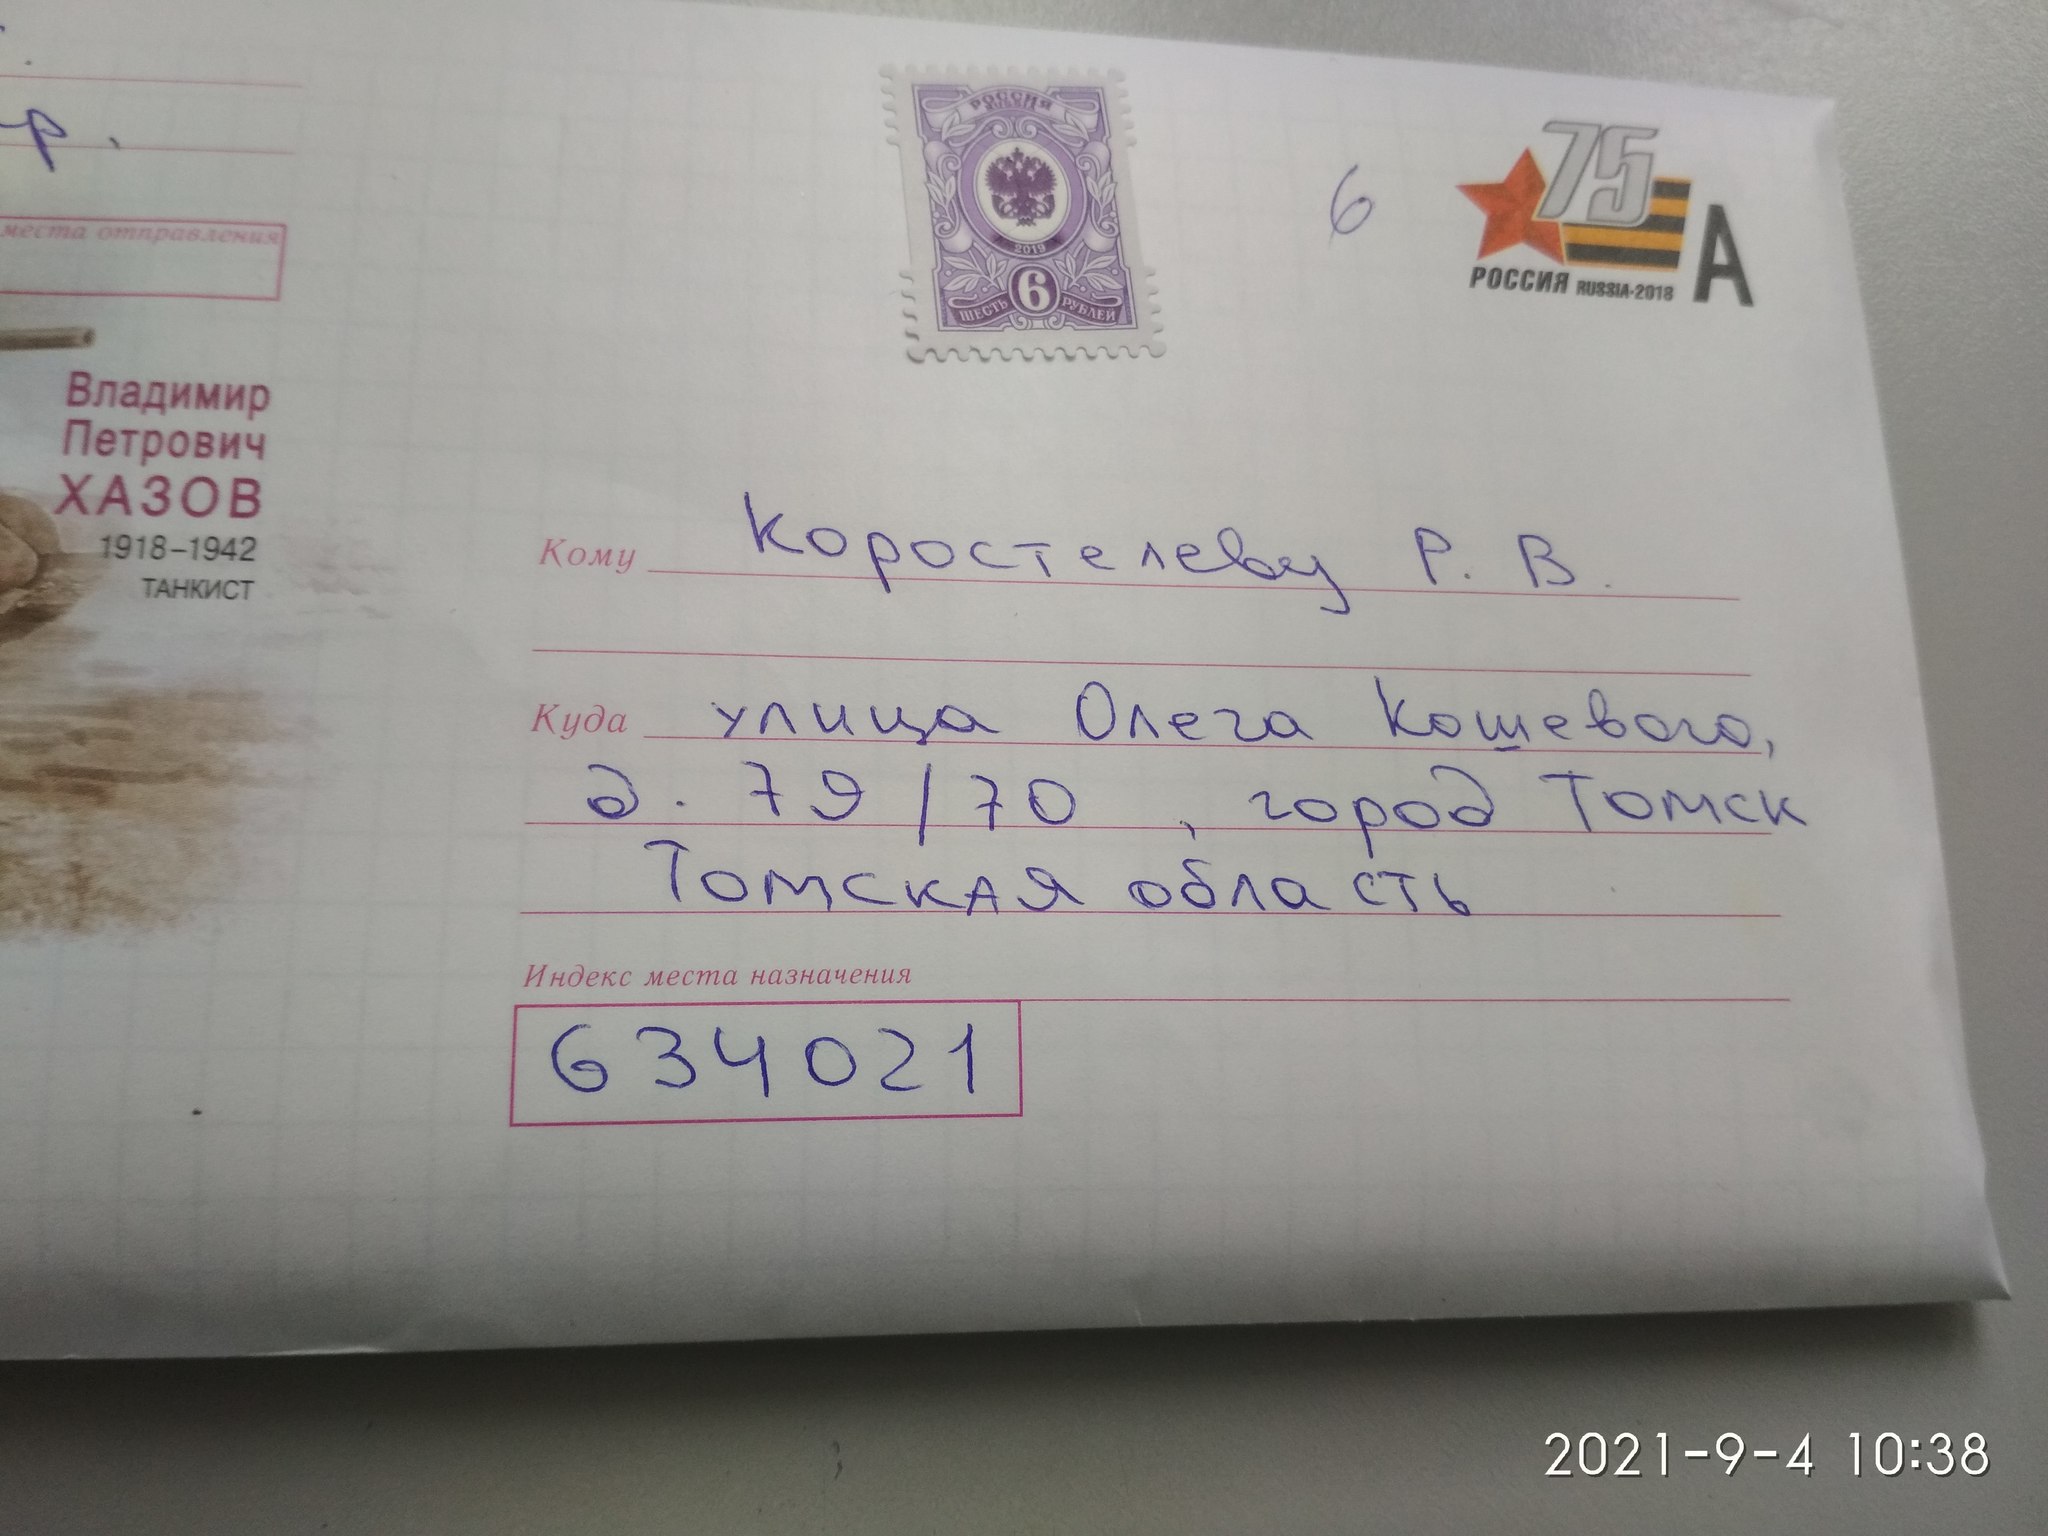 р.
места отправления
РОССИЯ
RUSSIA
2019
6
ШЕСТЬ РУБЛЕЙ
6
75
РОССИЯ RUSSIA·2018 А
Владимир
Петрович
ХАЗОВ
1918–1942
ТАНКИСТ
Кому Коростелеву Р. В.
Куда улица Олега Кошевого,
д. 79/70, город Томск
Томская область
Индекс места назначения
634021
2021-9-4 10:38